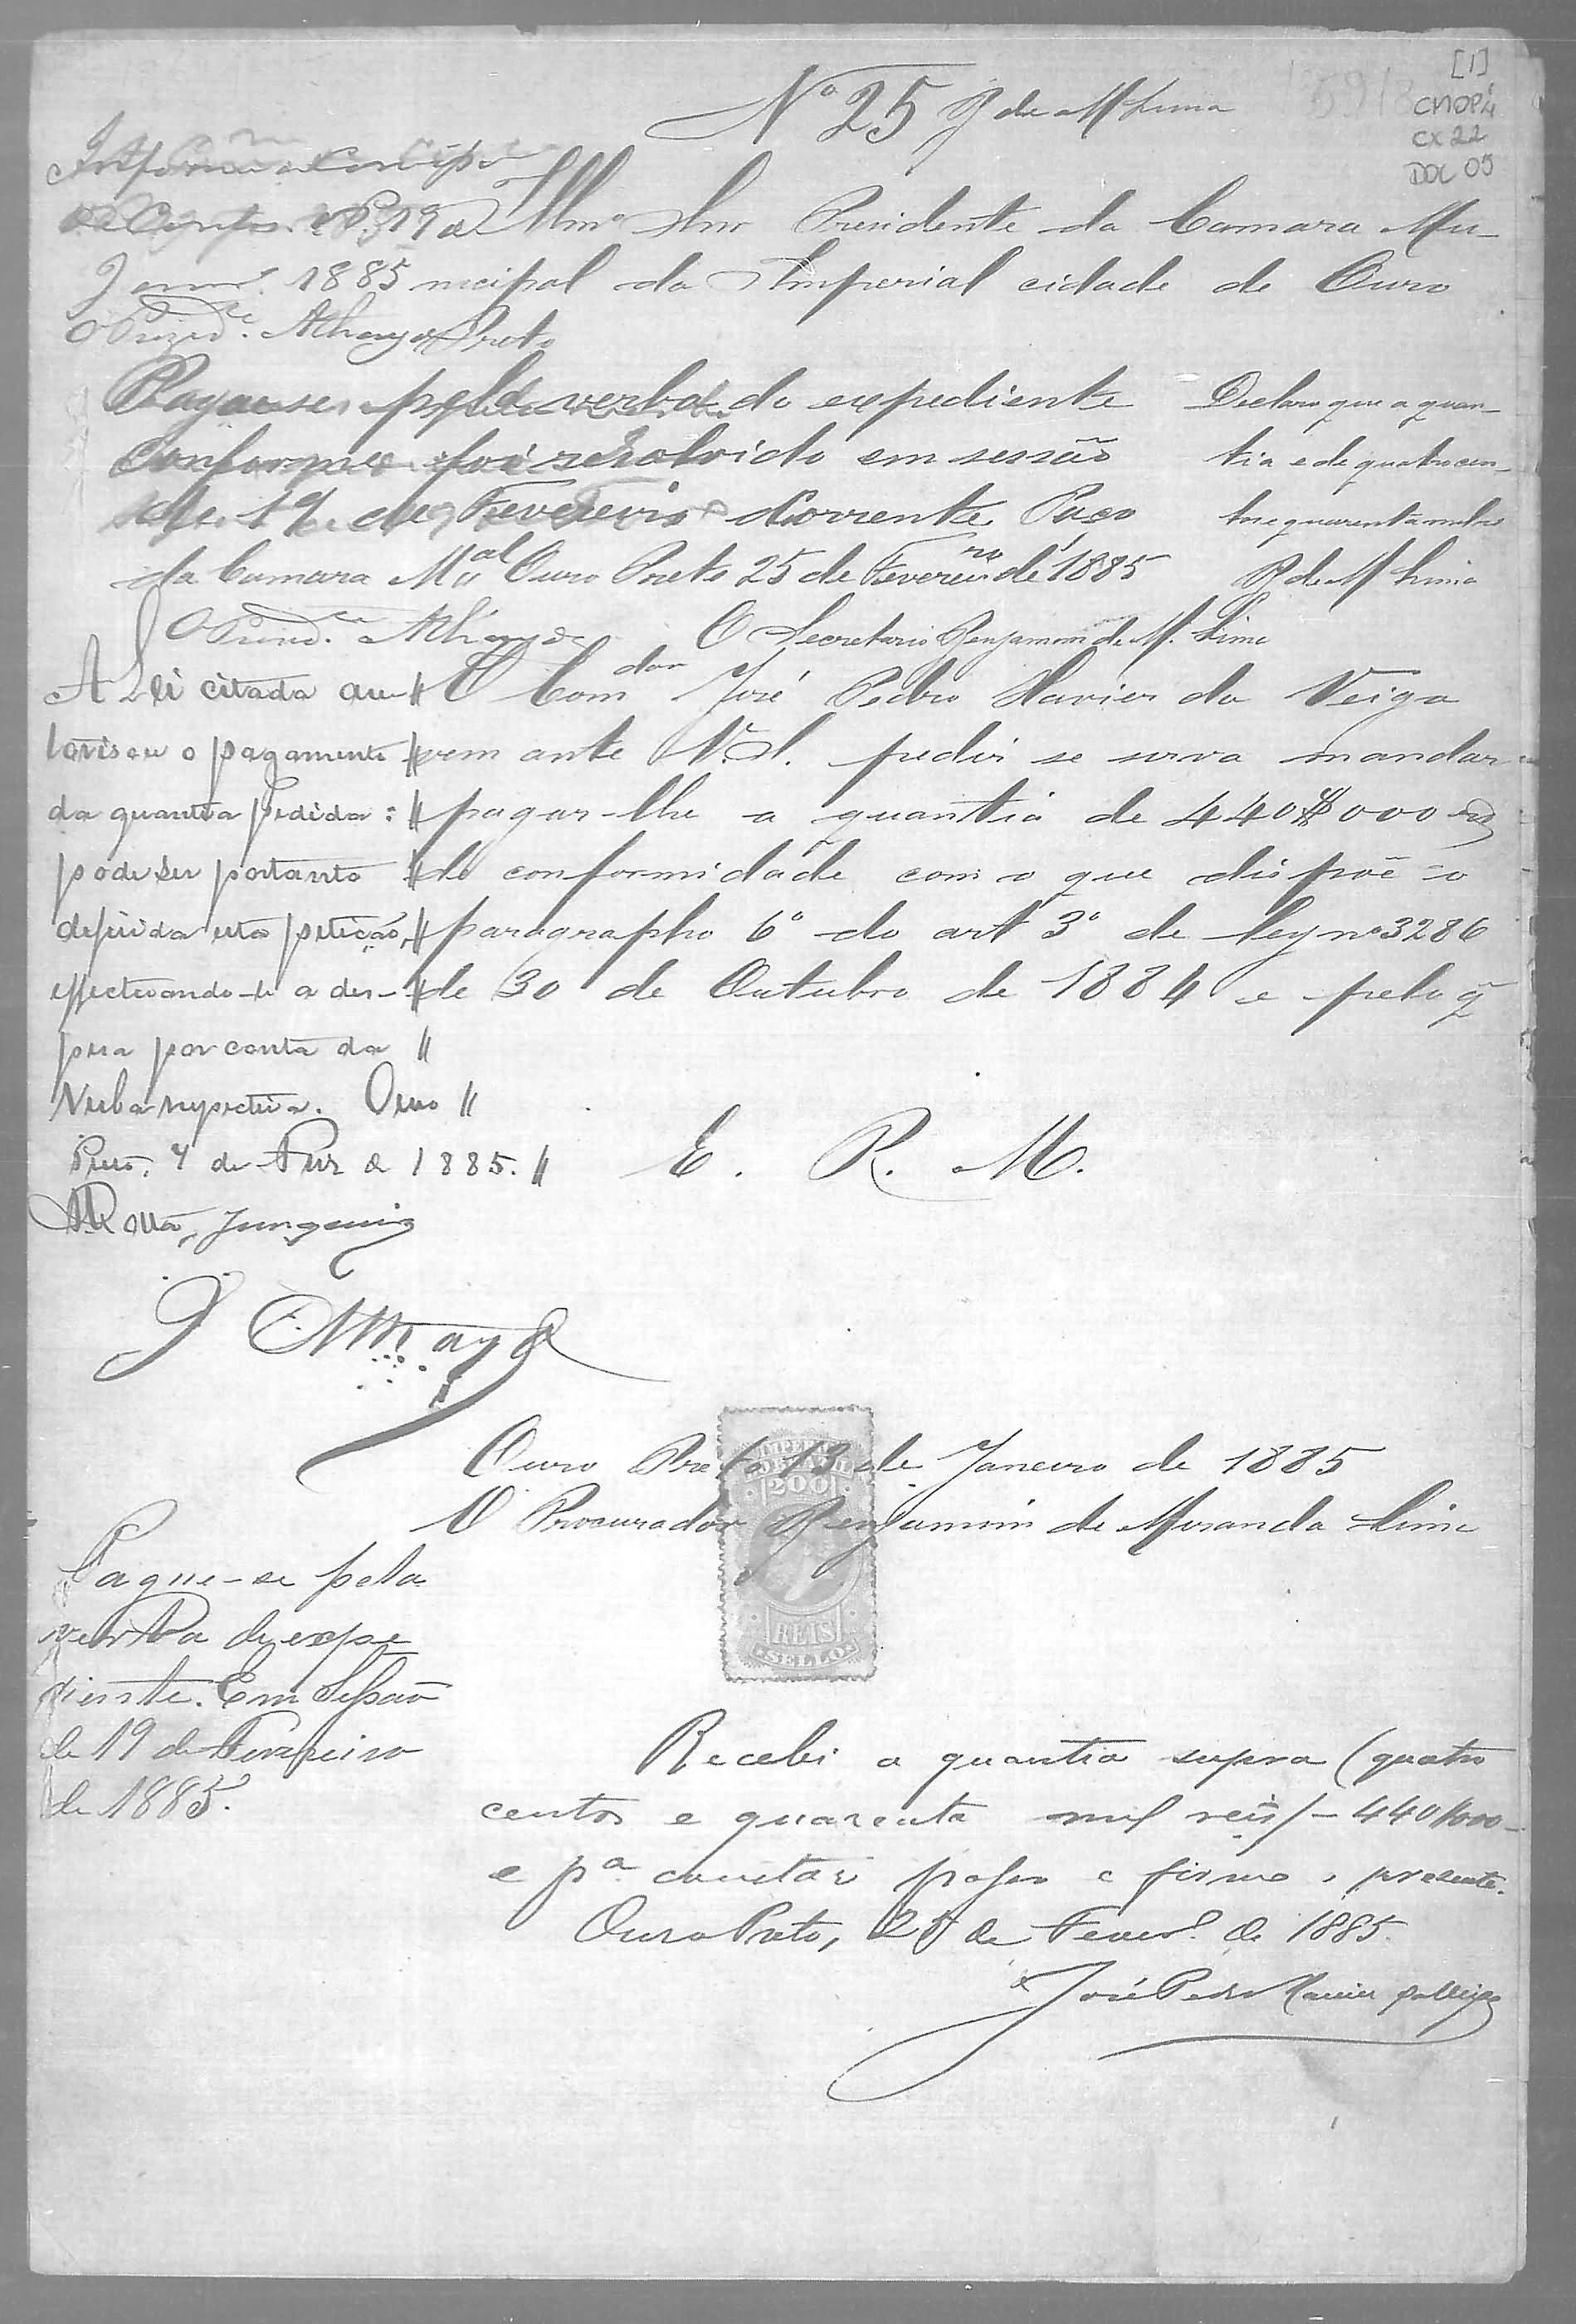 [1]
CMOP
CX 22
DOC 05
Nº 25 B de M Lima
Informe a Comissão
de Contas. O.P. 19 de
Janrº 1885
O Prezide. Athayde
Illmº Snr Presidente da Camara Mu-
nicipal da Imperial cidade de Ouro
Preto
Pague-se pela verba do expediente
conforme foi resolvido em sessão
de 19 de Fevereiro Corrente Paço
da Camara Mal Ouro Preto 25 de Fevereiro de 1885
O Presde Athayde O Secretario Benjamim de M. Lima
Declaro que a quan-
tia e de quatrocen-
tos e quarenta mil rs
B de M Lima
O Comdor José Pedro Xavier da Veiga
vem ante V.S. pedir se sirva mandar
pagar-lhe a quantia de 440$000 rs
de conformidade com o que dispoẽ o
paragrapho 6º do art 3º de ley nº 3286
de 30 de Outubro de 1884 e pelo q̃
E. R. M.
A Lei citada au-
torisou o pagamento
da quantia pedida:
pode ser portanto
deferida esta petição,
effectuando-se a des-
pesa por conta da
Verba respectiva. Ouro
Preto, 4 de Fevr de 1885.
Motta, Junqueira
J Athayde
Ouro Preto 13 de Janeiro de 1885
O Procurador Benjamim de Miranda Lima
IMPERIO DO BRAZIL
200
REIS
SELLO
Pague-se pela
verba de expe
diente. Em Sessão
de 19 de Fevereiro
de 1885.
Recebi a quantia supra (quatro
centos e quarenta mil reis) - 440$000 -
e pª constar passo e firmo o presente.
Ouro Preto, 25 de Feverº de 1885.
José Pedro Xavier da Veiga